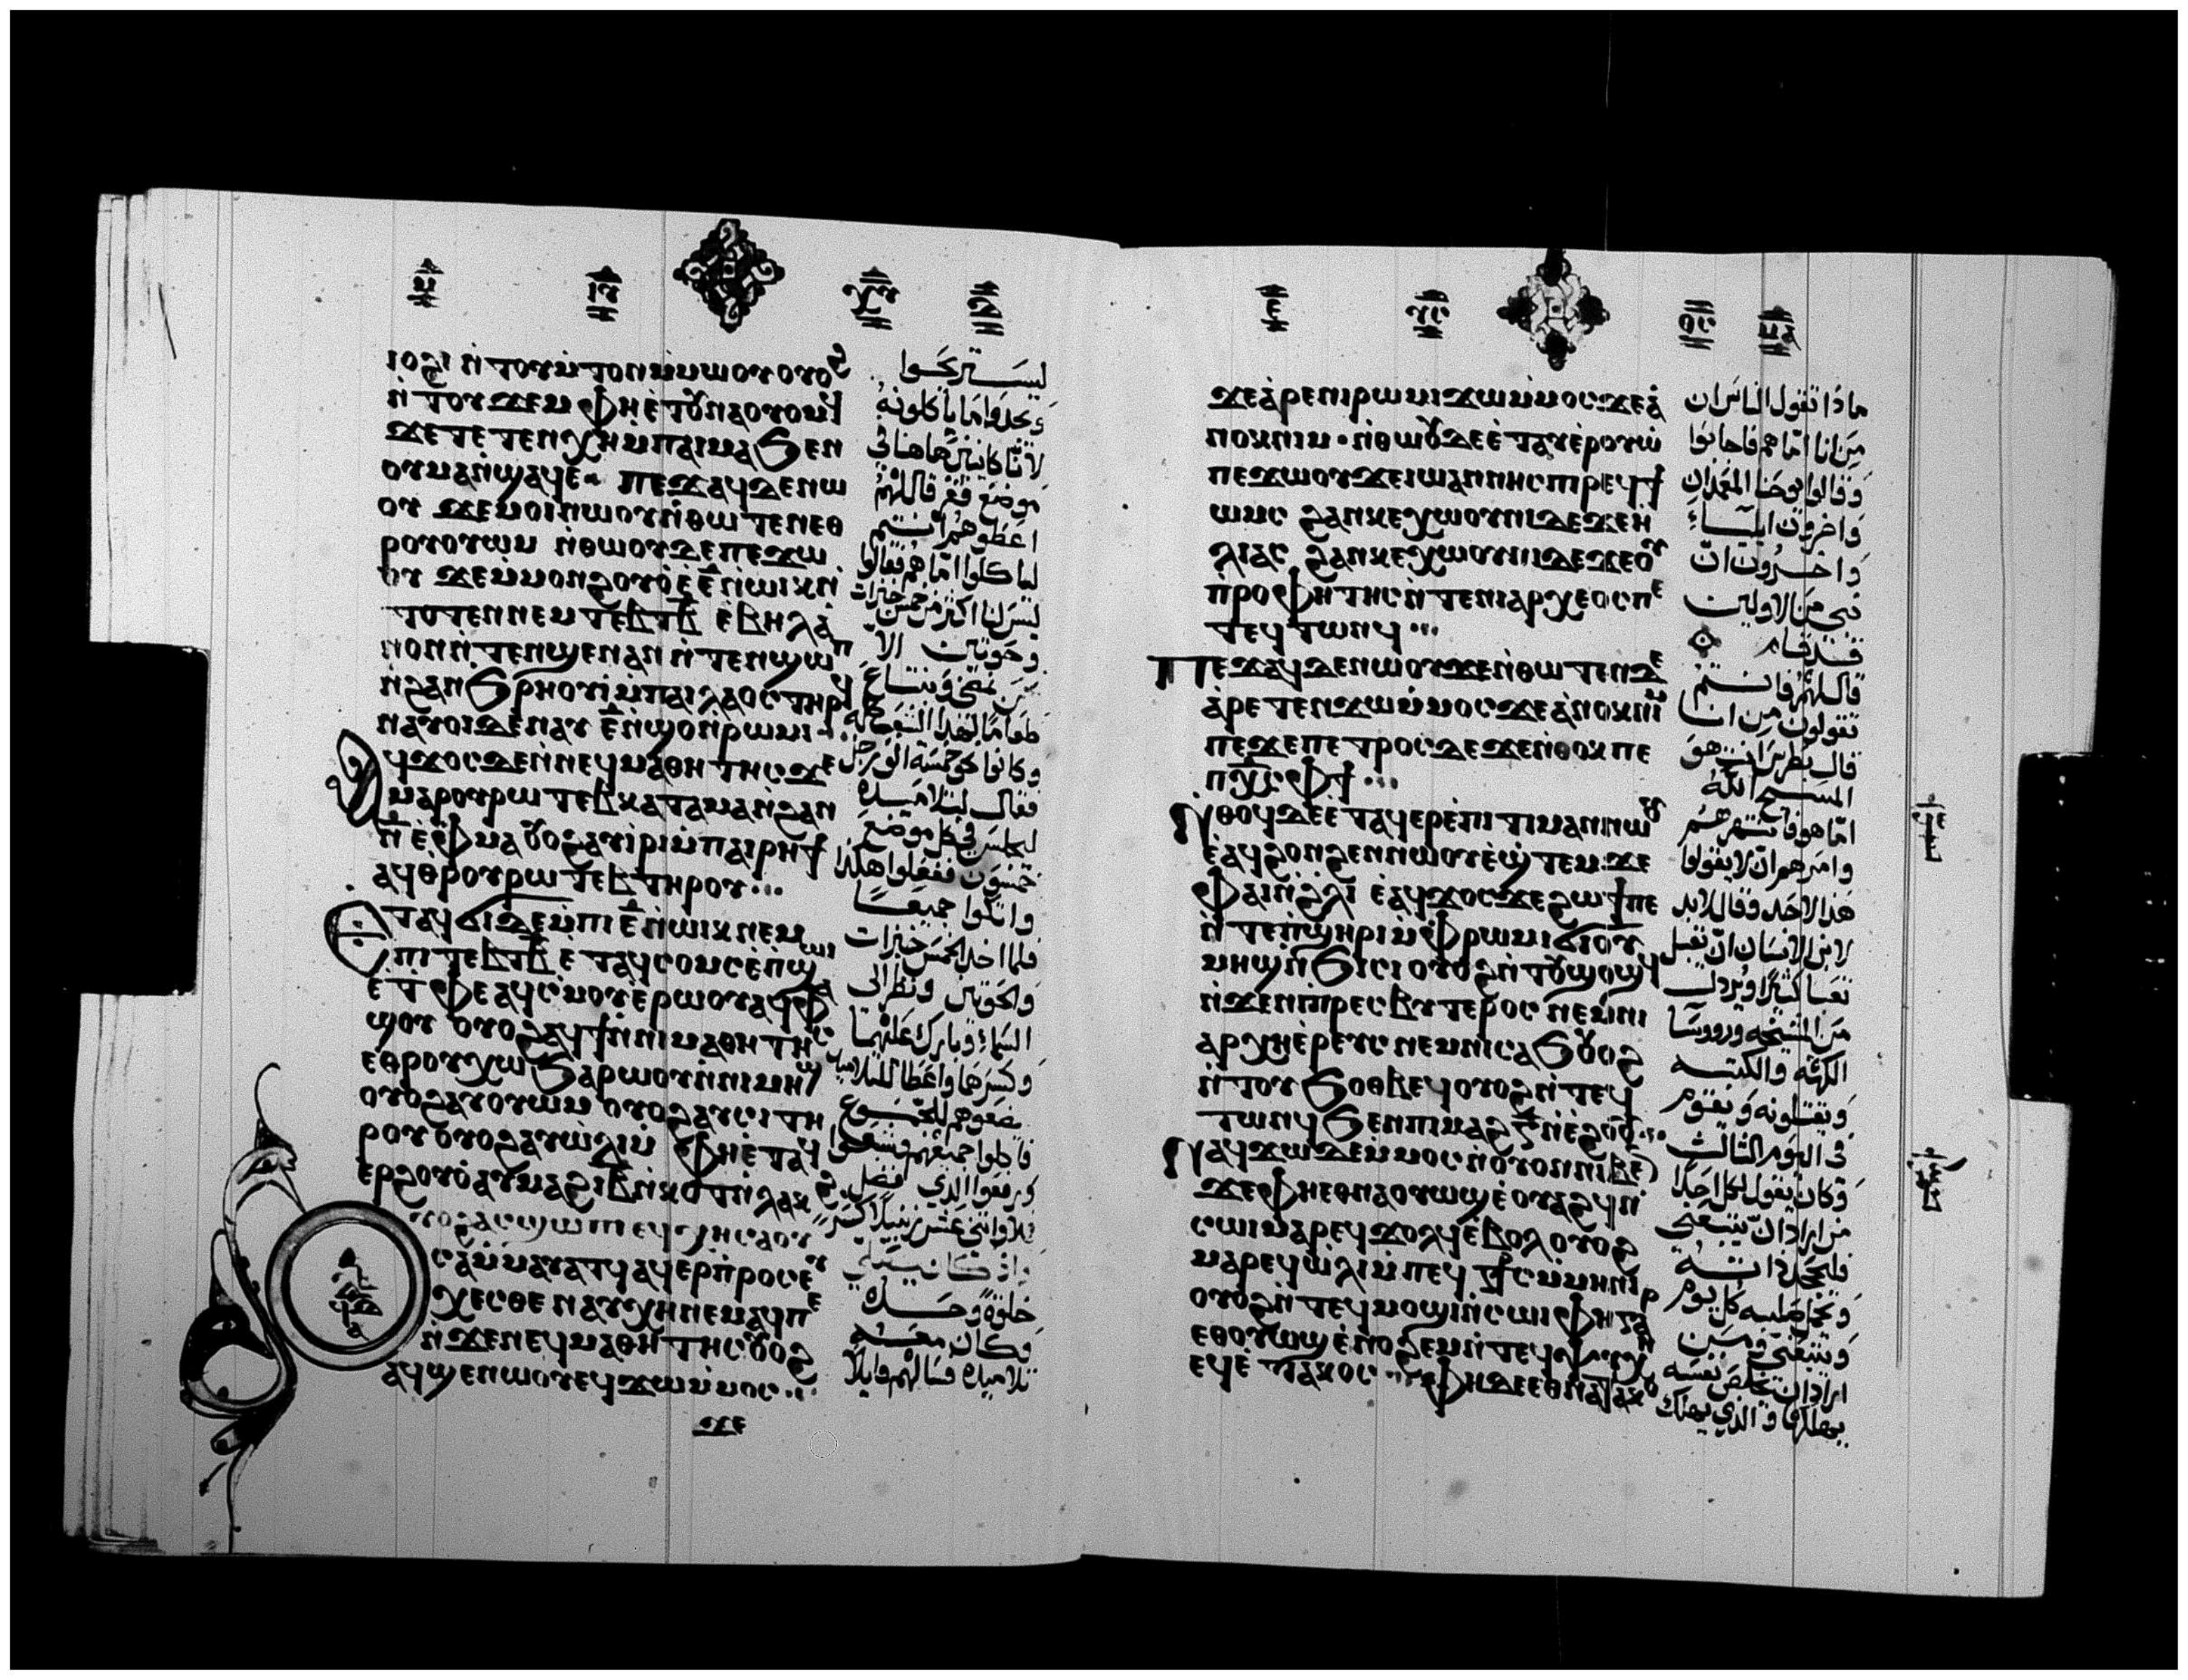 ⲓⲟϩⲓ ⲛ̀ⲧⲟⲩⲙ̀ⲧⲟⲛ ⲙ̀ⲙⲱⲟⲩ ⲟⲩⲟϩ
ⲛ̀ⲧⲟⲩϫⲉⲙ ⲫⲏⲉ̀ⲧⲟⲩⲛⲁⲟⲩⲟⲙϥ
ϫⲉ ⲧⲉⲧⲉⲛⲭⲏ ⲙ̀ⲡⲁⲓⲙⲁ ϧⲉⲛ
ⲟⲩⲙⲁ ⲛ̀ϣⲁϥⲉ ⲡⲉϫⲁϥ ⲇⲉ ⲛⲱ
ⲟⲩ ϫⲉ ⲙⲟⲓ ⲛⲱⲟⲩ ⲛ̀ⲑⲱⲧⲉⲛ ⲉⲑ
ⲣⲟⲩⲟⲩⲱⲙ ⲛ̀ⲑⲱⲟⲩ ⲇⲉ ⲡⲉϫⲱ
ⲟⲩ ϫⲉ ⲙ̀ⲙⲟⲛ ϩⲟⲩⲟ̀ ⲉ̀ ⲉ̅ ⲛ̀ⲱⲓⲕ ⲛ̀
ⲧⲟⲧⲉⲛ ⲛⲉⲙ ⲧⲉⲃⲧ ⲃ̅ ⲉⲃⲏⲗ ⲁ̀
ⲛⲟⲛ ⲛ̀ⲧⲉⲛϣⲉⲛⲁⲛ ⲛ̀ⲧⲉⲛϣⲱⲡ
ⲛ̀ϩⲁⲛϧⲣⲏⲟⲩⲓ̀ ⲙ̀ⲡⲁⲓⲗⲁⲟⲥ ⲧⲏⲣϥ
ⲛⲁⲩⲟⲓ ⲇⲉ ⲛⲁⲩ ⲉ̅ ⲛ̀ϣⲟ ⲛ̀ⲣⲱⲙⲓ
ϥϫⲟⲥ ⲇⲉ ⲛ̀ⲛⲉϥⲙⲁⲑⲏⲧⲏⲥ ϫⲉ
ⲙⲁⲣⲟⲩⲣⲱⲧⲉⲃ ⲕⲁⲧⲁ ⲙⲁ ⲛ̀ϩⲁⲛ
ⲛ̅ ⲉ̀ⲫⲙⲁ ⲟⲩⲟϩ ⲁⲩⲓ̀ⲣⲓ ⲙ̀ⲡⲁⲓⲣⲏϯ
ⲁϥⲑ̀ⲣⲟⲩⲣⲱⲧⲉⲃ ⲧⲏⲣⲟⲩ
Ⲉⲧⲁϥϭⲓ ⲇⲉ ⲙ̀ⲡⲓ ⲉ̅ ⲛ̀ⲱⲓⲕ ⲛⲉⲙ
ⲡⲓ ⲧⲉⲃⲧ ⲃ̅ ⲉ̀ⲧⲁϥⲥⲟⲙⲥ ⲉ̀ⲡϣⲱⲓ
ⲉ̀ⲧⲫⲉ ⲁϥⲥ̀ⲙⲟⲩ ⲉ̀ⲣⲱⲟⲩ ⲁϥⲫⲁ
ϣⲟⲩ ⲟⲩⲟϩ ⲁϥϯ ⲛ̀ⲛⲓⲙⲁⲑⲏⲧⲏⲥ
ⲉ̀ⲑⲣⲟⲩⲭⲱ ϧⲁⲣⲱⲟⲩ ⲛ̀ⲛⲓⲙⲏϣ
ⲟⲩⲟϩ ⲁⲩⲟⲩⲱⲙ ⲟⲩⲟϩ ⲁⲩⲥⲓ ⲧⲏ
ⲣⲟⲩ ⲟⲩⲟϩ ⲁⲩⲱ̀ⲗⲓ ⲙ̀ⲫⲏⲉ̀ⲧⲁϥ
ⲉⲣϩⲟⲩⲟ̀ ⲁⲩⲙⲁϩ ⲓ̅ⲃ̅ ⲛ̀ⲕⲟⲧ ⲛ̀ⲗⲁⲕ
ⲟⲩⲟϩ ⲁⲥϣⲱⲡⲓ ⲉϥⲭⲏ ⲥⲁⲟⲩ
ⲥⲁ ⲙ̀ⲙⲁⲩⲁⲧϥ ⲁϥⲉⲣⲡ̀ⲣⲟⲥⲉⲩ
ⲭⲉⲥⲑⲉ ⲛⲁⲩⲭⲏ ⲛⲉⲙⲁϥ ⲡⲉ
ⲛ̀ϫⲉ ⲛⲉϥⲙⲁⲑⲏⲧⲏⲥ ⲟⲩⲟϩ
ⲁϥϣⲉⲛⲱⲟⲩ ⲉϥϫⲱ ⲙ̀ⲙⲟⲥ
ليستريحوا
ويجدوا ما ياكلونه
لاننا كاينين هاهنا في
موضع قفر قال لهم
اعطوهم انتم
لياكلوا اما هم فقالوا
ليس لنا اكثر من خمس خبزات
وحوتين الا
نمضي ونبتاع
طعاما لهذا الشعب كله
وكانوا نحو خمسة الف رجل
فقال لتلاميذه
ليجلس في كل موضع
خمسون ففعلوا هكذا
واتكوا جميعا
فلما اخذ الخمس خبزات
والحوتين ونظر الى
السماء وبارك عليهما
وكسرها واعطا للتلاميذ
يضعوهم للجموع
فاكلوا جميعهم وشبعوا
ورفعوا الذي فضل
اثني عشر زنبيلا كسر
واذ كان يصلي
خلوة وحده
وكان معه
تلاميذه فسالهم قايلا
ϫⲉ ⲁ̀ⲣⲉ ⲛⲓⲣⲱⲙⲓ ϫⲱ ⲙ̀ⲙⲟⲥ ϫⲉ ⲁ̀
ⲛⲟⲕ ⲛⲓⲙ ⲛ̀ⲑⲱⲟⲩ ⲇⲉ ⲉ̀ⲧⲁⲩⲉ̀ⲣⲟⲩⲱ̀
ⲡⲉϫⲱⲟⲩ ϫⲉ ⲓⲱⲁⲛⲛⲏⲥ ⲡⲓⲣⲉϥϯ
ⲱⲙⲥ ϩⲁⲛⲕⲉⲭⲱⲟⲩⲛⲓ ⲇⲉ ϫⲉ ⲏ̀
ⲗⲓⲁⲥ ϩⲁⲛⲕⲉⲭⲱⲟⲩⲛⲓ ⲇⲉ ϫⲉ ⲟⲩ
ⲡ̀ⲣⲟⲫⲏⲧⲏⲥ ⲛ̀ⲧⲉ ⲛⲓⲁⲣⲭⲉⲟⲥ ⲡⲉ
ⲧⲉϥⲧⲱⲛϥ
Ⲡⲉϫⲁϥ ⲇⲉ ⲛⲱⲟⲩ ϫⲉ ⲛ̀ⲑⲱⲧⲉⲛ ⲇⲉ
ⲁ̀ⲣⲉⲧⲉⲛϫⲱ ⲙ̀ⲙⲟⲥ ϫⲉ ⲁ̀ⲛⲟⲕ ⲛⲓⲙ
ⲡⲉϫⲉ ⲡⲉⲧⲣⲟⲥ ⲇⲉ ϫⲉ ⲛ̀ⲑⲟⲕ ⲡⲉ
ⲡⲭ̅ⲥ̅ ⲫϯ
Ⲛⲑⲟϥ ⲇⲉ ⲉ̀ⲧⲁϥⲉⲣⲉ̀ⲡⲓⲧⲓⲙⲁⲛ ⲛⲱⲟⲩ
ⲉ̀ⲁϥϩⲟⲛϩⲉⲛ ⲛⲱⲟⲩ ⲉ̀ϣ̀ⲧⲉⲙϫⲉ
ⲫⲁⲓ ⲛ̀ϩ̀ⲗⲓ ⲉ̀ⲁϥϫⲟⲥ ϫⲉ ϩⲱϯ ⲡⲉ
ⲛ̀ⲧⲉ ⲡ̀ϣⲏⲣⲓ ⲙ̀ⲫⲣⲱⲙⲓ ϭⲓ ⲟⲩ
ⲙⲏϣ ⲛ̀ϧⲓⲥⲓ ⲟⲩⲟϩ ⲛ̀ⲧⲟⲩϣⲟϣϥ
ⲛ̀ϫⲉ ⲛⲓⲡⲣⲉⲥⲃⲩⲧⲉⲣⲟⲥ ⲛⲉⲙ ⲛⲓ
ⲁⲣⲭⲏⲉ̀ⲣⲉⲩⲥ ⲛⲉⲙ ⲛⲓⲥⲁϧ ⲟⲩⲟϩ
ⲛ̀ⲧⲟⲩϧⲟⲑⲃⲉϥ ⲟⲩⲟϩ ⲛ̀ⲧⲉϥ
ⲧⲱⲛϥ ϧⲉⲛ ⲡⲓⲙⲁϩ ⲅ̅ ⲛ̀ⲉ̀ϩⲟⲟⲩ
Ⲛⲁϥϫⲱ ⲇⲉ ⲙ̀ⲙⲟⲥ ⲛ̀ⲟⲩⲟⲛ ⲛⲓⲃⲉⲛ
ϫⲉ ⲫⲏⲉⲑⲛⲁⲟⲩⲱϣ ⲉ̀ⲟⲩⲁϩϥ ⲛ̀
ⲥⲱⲓ ⲙⲁⲣⲉϥϫⲟⲗϥ ⲉ̀ⲃⲟⲗ ⲟⲩⲟϩ
ⲙⲁⲣⲉϥⲱ̀ⲗⲓ ⲙ̀ⲡⲉϥⲥ̅ⲧ̅ⲥ̅ ⲙ̀ⲙⲏⲛⲓ
ⲟⲩⲟϩ ⲛ̀ⲧⲉϥⲙⲟϣⲓ ⲛ̀ⲥⲱⲓ ⲫⲏ ⲅⲁⲣ
ⲉⲑⲟⲩⲱϣ ⲉ̀ⲛⲟϩⲉⲙ ⲛ̀ⲧⲉϥⲯⲩⲭⲏ
ⲉϥⲉ̀ⲧⲁⲕⲟⲥ ⲫⲏ ⲇⲉ ⲉⲑⲛⲁⲧⲁⲕⲟ
ماذا تقول الناس ان
من انا اما هم فاجابوا
وقالوا يوحنا المعمدان
واخرون ايلياء
واخرون ان
نبي من الاولين
قد قام
قال لهم فانتم
تقولون من انا
قال بطرس انت هو
المسيح الله
اما هو فانتهرهم
وامرهم ان لا يقولوا
هذا لاحد وقال لابد
لابن الانسان ان يقبل
تعبا كثيرا ويرذل
من المشيخه ورووسا
الكهنه والكتبه
ويقتلونه ويقوم
في اليوم الثالث
وكان يقول لكل احد
من اراد ان يتبعني
فليجحد ذاته
ويحمل صليبه كل يوم
ويتبعني ومن
اراد ان يخلص نفسه
يهلكها والذي يهلك